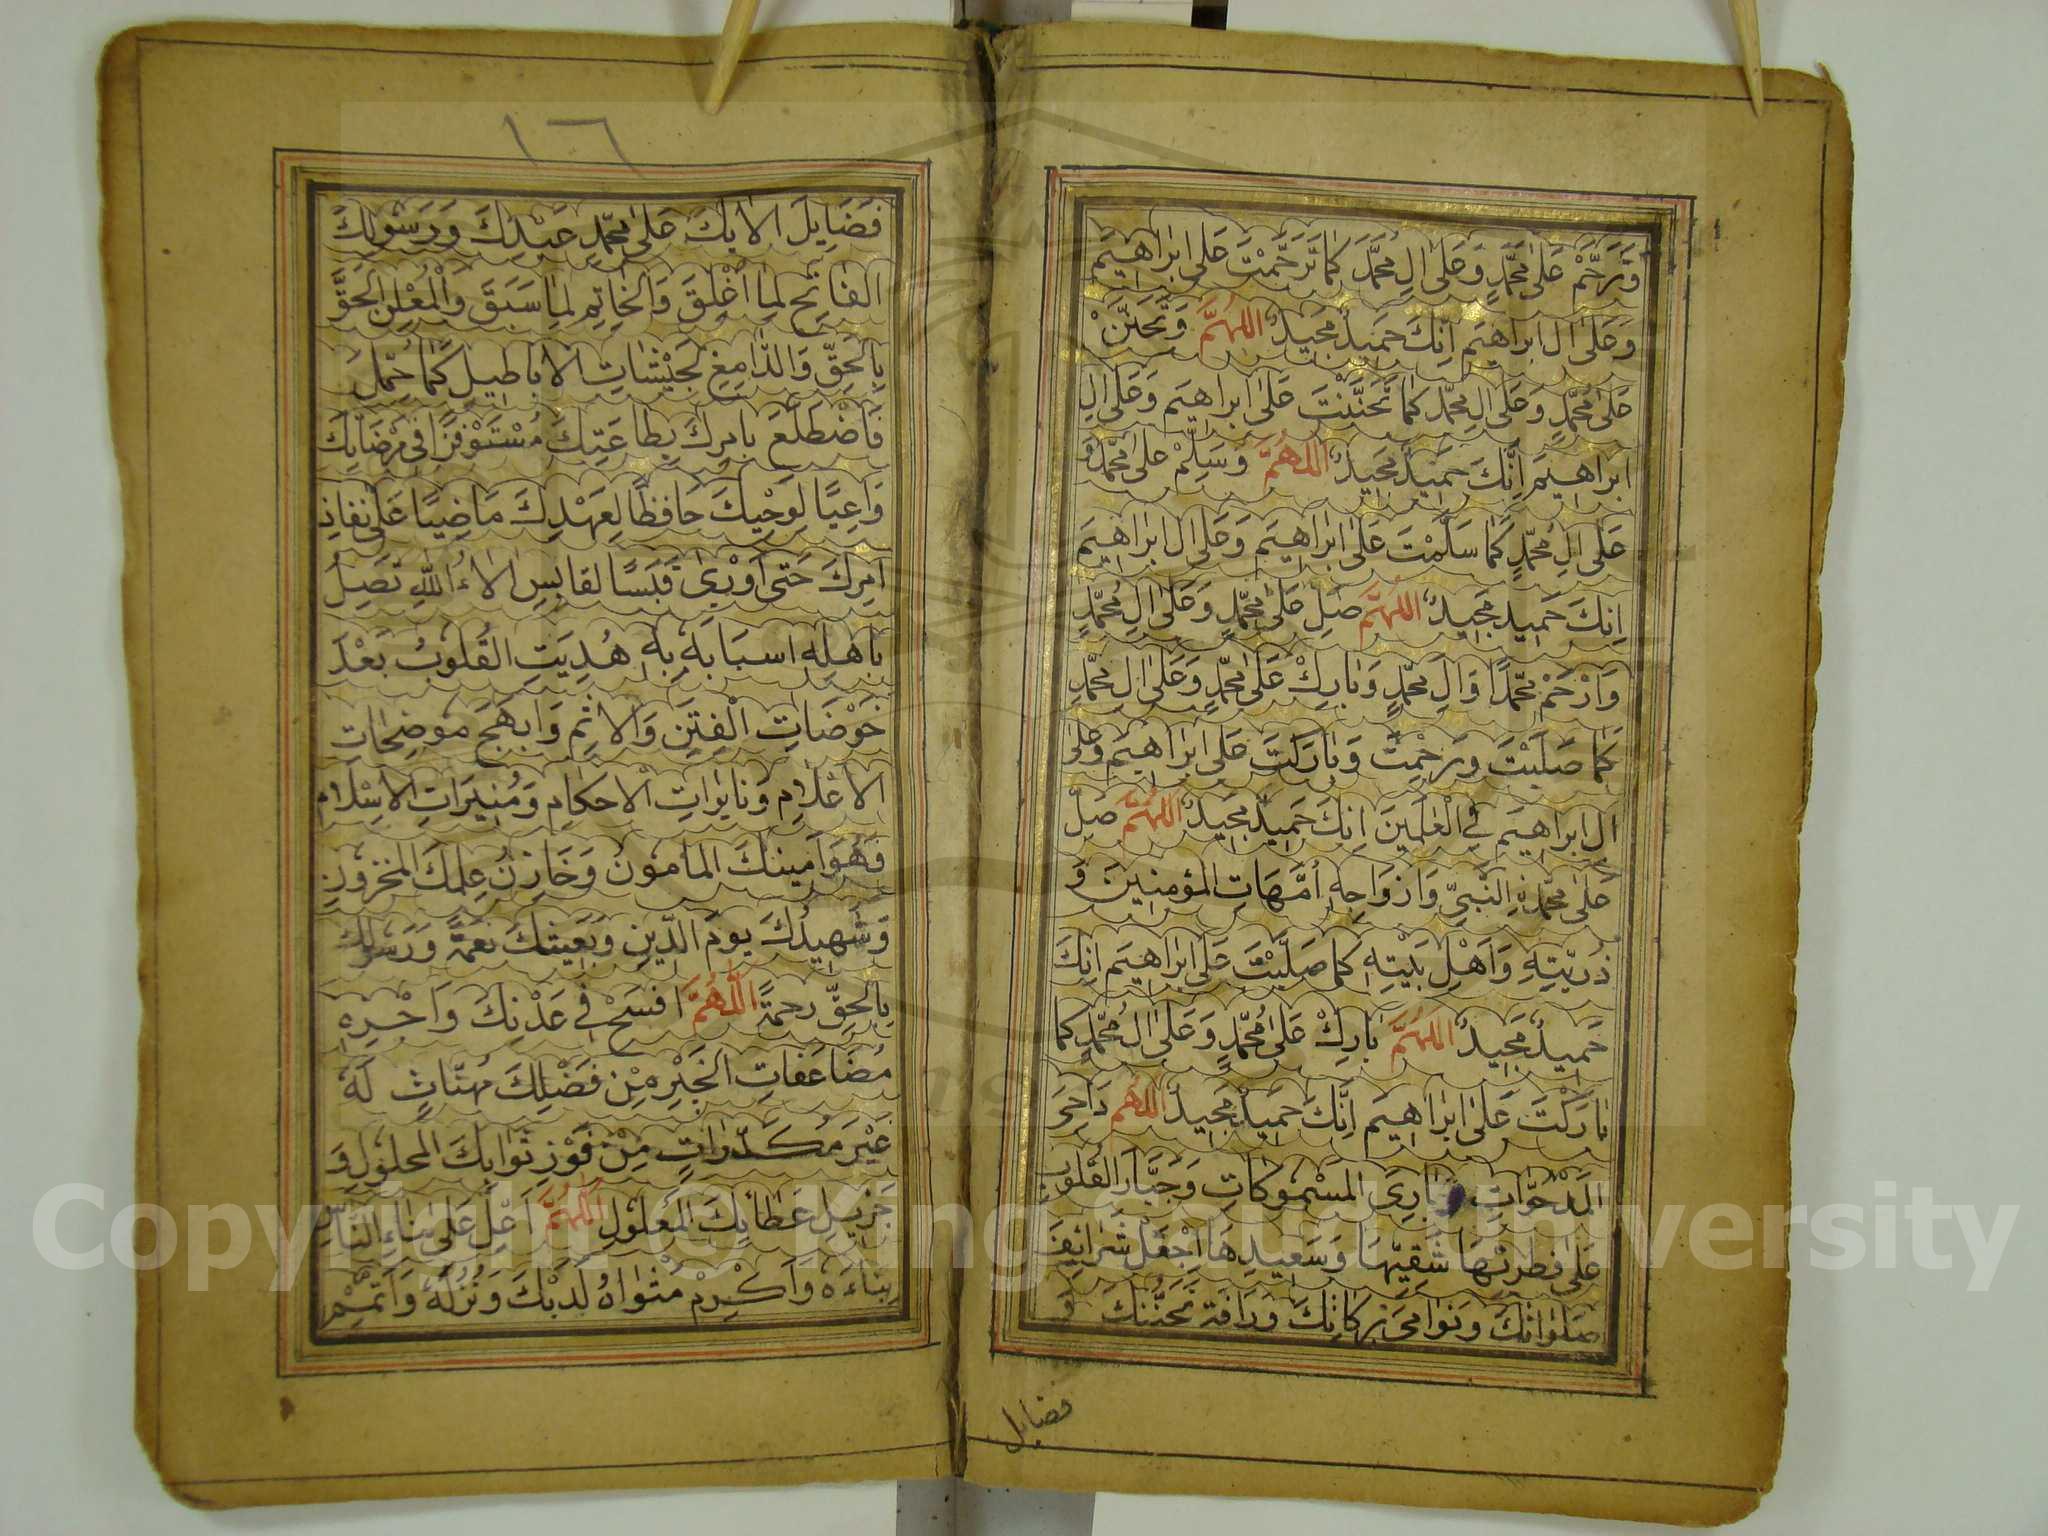 وَتَرَحَّمْ عَلٰى مُحَمَّدٍ وَعَلٰى اٰلِ مُحَمَّدٍ كَمَا تَرَحَّمْتَ عَلٰى ابْرَاهِيْمَ
وَعَلٰى اٰلِ ابْرَاهِيْمَ اِنَّكَ حَمِيْدٌ مَجِيْدٌ اللّٰهُمَّ وَتَحَنَّنْ
عَلٰى مُحَمَّدٍ وَعَلٰى اٰلِ مُحَمَّدٍ كَمَا تَحَنَّنْتَ عَلٰى ابْرَاهِيْمَ وَعَلٰى اٰلِ
ابْرَاهِيْمَ اِنَّكَ حَمِيْدٌ مَجِيْدٌ اللّٰهُمَّ وَسَلِّمْ عَلٰى مُحَمَّدٍ وَ
عَلٰى اٰلِ مُحَمَّدٍ كَمَا سَلَّمْتَ عَلٰى ابْرَاهِيْمَ وَعَلٰى اٰلِ ابْرَاهِيْمَ
اِنَّكَ حَمِيْدٌ مَجِيْدٌ اللّٰهُمَّ صَلِّ عَلٰى مُحَمَّدٍ وَعَلٰى اٰلِ مُحَمَّدٍ
وَارْحَمْ مُحَمَّدًا وَاٰلَ مُحَمَّدٍ وَبَارِكْ عَلٰى مُحَمَّدٍ وَعَلٰى اٰلِ مُحَمَّدٍ
كَمَا صَلَّيْتَ وَرَحِمْتَ وَبَارَكْتَ عَلٰى ابْرَاهِيْمَ وَعَلٰى
اٰلِ ابْرَاهِيْمَ فِى الْعٰلَمِيْنَ اِنَّكَ حَمِيْدٌ مَجِيْدٌ اللّٰهُمَّ صَلِّ
عَلٰى مُحَمَّدٍ النَّبِىِّ وَاَزْوَاجِهٖ اُمَّهَاتِ الْمُؤْمِنِيْنَ وَ
ذُرِّيَّتِهٖ وَاَهْلِ بَيْتِهٖ كَمَا صَلَّيْتَ عَلٰى ابْرَاهِيْمَ اِنَّكَ
حَمِيْدٌ مَجِيْدٌ اللّٰهُمَّ بَارِكْ عَلٰى مُحَمَّدٍ وَعَلٰى اٰلِ مُحَمَّدٍ كَمَا
بَارَكْتَ عَلٰى ابْرَاهِيْمَ اِنَّكَ حَمِيْدٌ مَجِيْدٌ اللّٰهُمَّ دَاحِىَ
الْمَدْحُوَّاتِ وَبَارِئَ الْمَسْمُوكَاتِ وَجَبَّارَ الْقُلُوْبِ
عَلٰى فِطْرَتِهَا شَقِيِّهَا وَسَعِيْدِهَا اِجْعَلْ شَرَائِفَ
صَلَوَاتِكَ وَنَوَامِىَ بَرَكَاتِكَ وَرَافَةَ تَحَنُّنِكَ وَ
فضايل
١٦
فَضَايِلَ اٰلَايِكَ عَلٰى مُحَمَّدٍ عَبْدِكَ وَرَسُوْلِكَ
الْفَاتِحِ لِمَا اُغْلِقَ وَالْخَاتِمِ لِمَا سَبَقَ وَالْمُعْلِنِ الْحَقَّ
بِالْحَقِّ وَالدَّامِغِ لِجَيْشَاتِ الْاَبَاطِيْلِ كَمَا حُمِّلَ
فَاضْطَلَعَ بِامْرِكَ بِطَاعَتِكَ مُسْتَوْفِزًا فِى مَرْضَاتِكَ
وَاعِيًا لِوَحْيِكَ حَافِظًا لِعَهْدِكَ مَاضِيًا عَلٰى نَفَاذِ
اَمْرِكَ حَتّٰى اَوْرٰى قَبَسًا لِقَابِسٍ اٰلَاءُ اللّٰهِ تَصِلُ
بِاَهْلِهٖ اسْبَابَهٗ بِهٖ هُدِيَتِ الْقُلُوْبُ بَعْدَ
خَوْضَاتِ الْفِتَنِ وَالْاِثْمِ وَابْهَجَ مُوْضِحَاتِ
الْاَعْلَامِ وَنَايِرَاتِ الْاَحْكَامِ وَمُنِيْرَاتِ الْاِسْلَامِ
فَهُوَ اَمِيْنُكَ الْمَامُوْنُ وَخَازِنُ عِلْمِكَ الْمَخْزُوْنِ
وَشَهِيْدُكَ يَوْمَ الدِّيْنِ وَبَعِيْثُكَ نِعْمَةً وَرَسُوْلُكَ
بِالْحَقِّ رَحْمَةً اللّٰهُمَّ افْسَحْ فِى عَدْنِكَ وَاجْزِهٖ
مُضَاعَفَاتِ الْخَيْرِ مِنْ فَضْلِكَ مُهَنَّاتٍ لَهٗ
غَيْرَ مُكَدَّرَاتٍ مِنْ فَوْزِ ثَوَابِكَ الْمَحْلُوْلِ وَ
جَزِيْلِ عَطَائِكَ الْمَعْلُوْلِ اللّٰهُمَّ اَعْلِ عَلٰى بِنَاءِ النَّاسِ
بِنَاءَهٗ وَاَكْرِمْ مَثْوَاهُ لَدَيْكَ وَنُزُلَهٗ وَاَتْمِمْ
Copyright © King Saud University